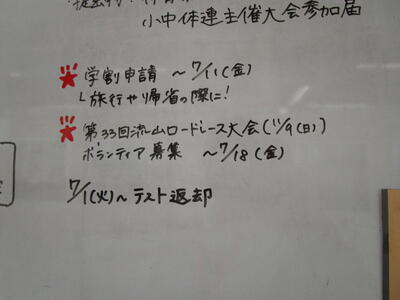 小中体連主催大会参加届
学割申請 ~7/11(金)
旅行や帰省の際に!
第33回流山ロードレース大会(11/9(日))
ボランティア募集 ~7/18(金)
7/1(火)~テスト返却